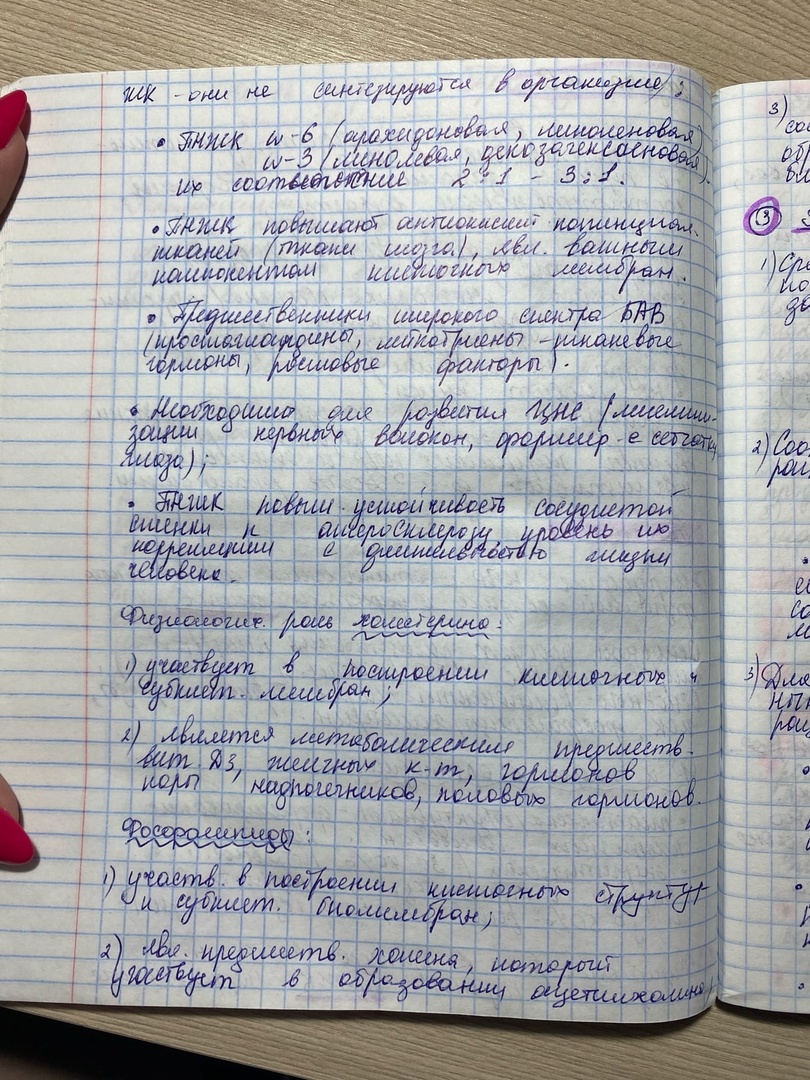 ЖК - они не синтезируются в организме);
• ПНЖК w-6 (арахидоновая, линоленовая)
w-3 (линолевая, декозагексаеновая).
их соотвествие 2:1 - 3:1.
• ПНЖК повышают антиокислит потинциал.
тканей (ткани мозга), явл. важным
компонентом клеточных мембран.
• Предшественники широкого спектра БАВ
(простогландины, лейкотриены - тканевые
гормоны, ростовые факторы).
• Необходимы для развития ЦНС (миелини-
зации нервных волокон, формир-е сетчатки
глаза);
• ПНЖК повыш. устойчивость сосудистой
стенки к атеросклерозу, уровень их
корреляции с длительностью жизни
человека.
Физиологич. роль холестерина:
1) участвует в построении клеточных и
субклет. мембран;
2) является метаболическим предшеств.
вит Д3, желчных к-т, гормонов
коры надпочечников, половых гормонов.
Фосфолипиды:
1) участв. в построении клеточных структур
и субклет. биомембран;
2) явл. предшеств. холина, который
участвует в образовании ацетилхолина
3)
③
1)
2)
3) Для